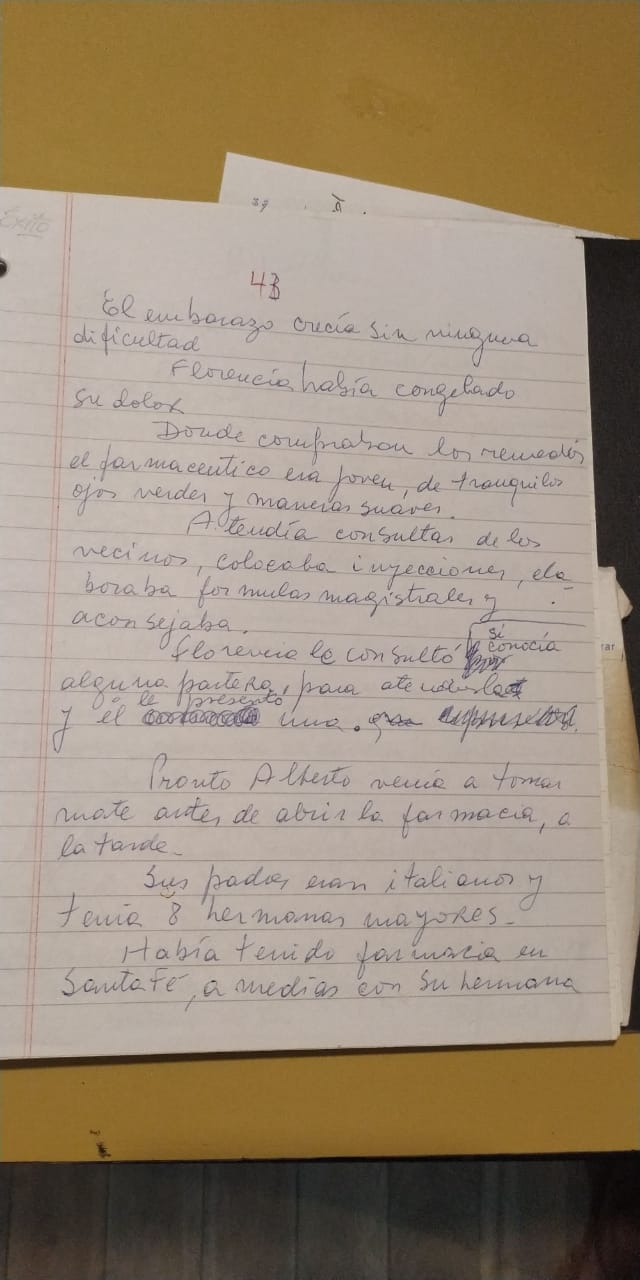 Éxito
39
II
43
El embarazo crecía sin ninguna
dificultad
Florencia había congelado
su dolor
Donde compraban los remedios
el farmaceutico era joven, de tranquilos
ojos verdes y maneras suaves.
Atendía consultas de los
vecinos, colocaba inyecciones, ela
boraba formulas magistrales y
aconsejaba.
Florencia le consultó si conocía
alguna partera, para atenderla
y él le presentó una.
Pronto Alberto venía a tomar
mate antes de abrir la farmacia, a
la tarde.
Sus padres eran italianos y
tenía 8 hermanas mayores.
Había tenido farmacia en
Santa Fé, a medias con su hermana